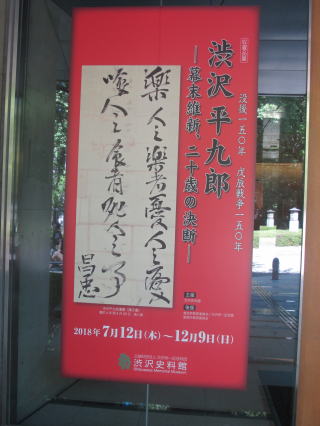 収蔵品展
没後一五〇年 戊辰戦争一五〇年
渋沢平九郎
―幕末維新、二十歳の決断―
楽人之楽者憂人之憂
喰人之食者死人之事
昌忠
主催
後援
2018年7月12日(木)～12月9日(日)
渋沢史料館
Shibusawa Memorial Museum